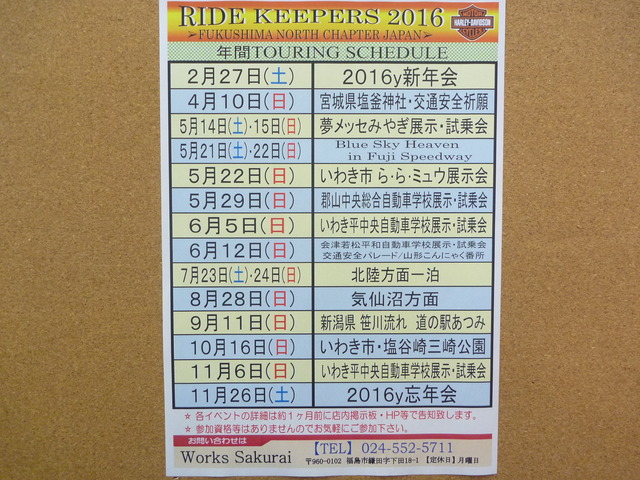 RIDE KEEPERS 2016
HARLEY-DAVIDSON
➢FUKUSHIMA NORTH CHAPTER JAPAN➢
年間TOURING SCHEDULE
2月27日(土) 2016y新年会
4月10日(日) 宮城県塩釜神社・交通安全祈願
5月14日(土)・15日(日) 夢メッセみやぎ展示・試乗会
5月21日(土)・22日(日) Blue Sky Heaven
in Fuji Speedway
5月22日(日) いわき市 ら・ら・ミュウ展示会
5月29日(日) 郡山中央総合自動車学校展示・試乗会
6月5日(日) いわき平中央自動車学校展示・試乗会
6月12日(日) 会津若松平和自動車学校展示・試乗会
交通安全パレード/山形こんにゃく番所
7月23日(土)・24日(日) 北陸方面一泊
8月28日(日) 気仙沼方面
9月11日(日) 新潟県 笹川流れ 道の駅あつみ
10月16日(日) いわき市・塩谷崎三崎公園
11月6日(日) いわき平中央自動車学校展示・試乗会
11月26日(土) 2016y忘年会
☆ 各イベントの詳細は約1ヶ月前に店内掲示板・HP等で告知致します。
☆ 参加資格等はありませんのでお気軽にご参加下さい。
お問い合わせは
Works Sakurai 【TEL】 024-552-5711
〒960-0102 福島市鎌田字下田18-1 【定休日】月曜日